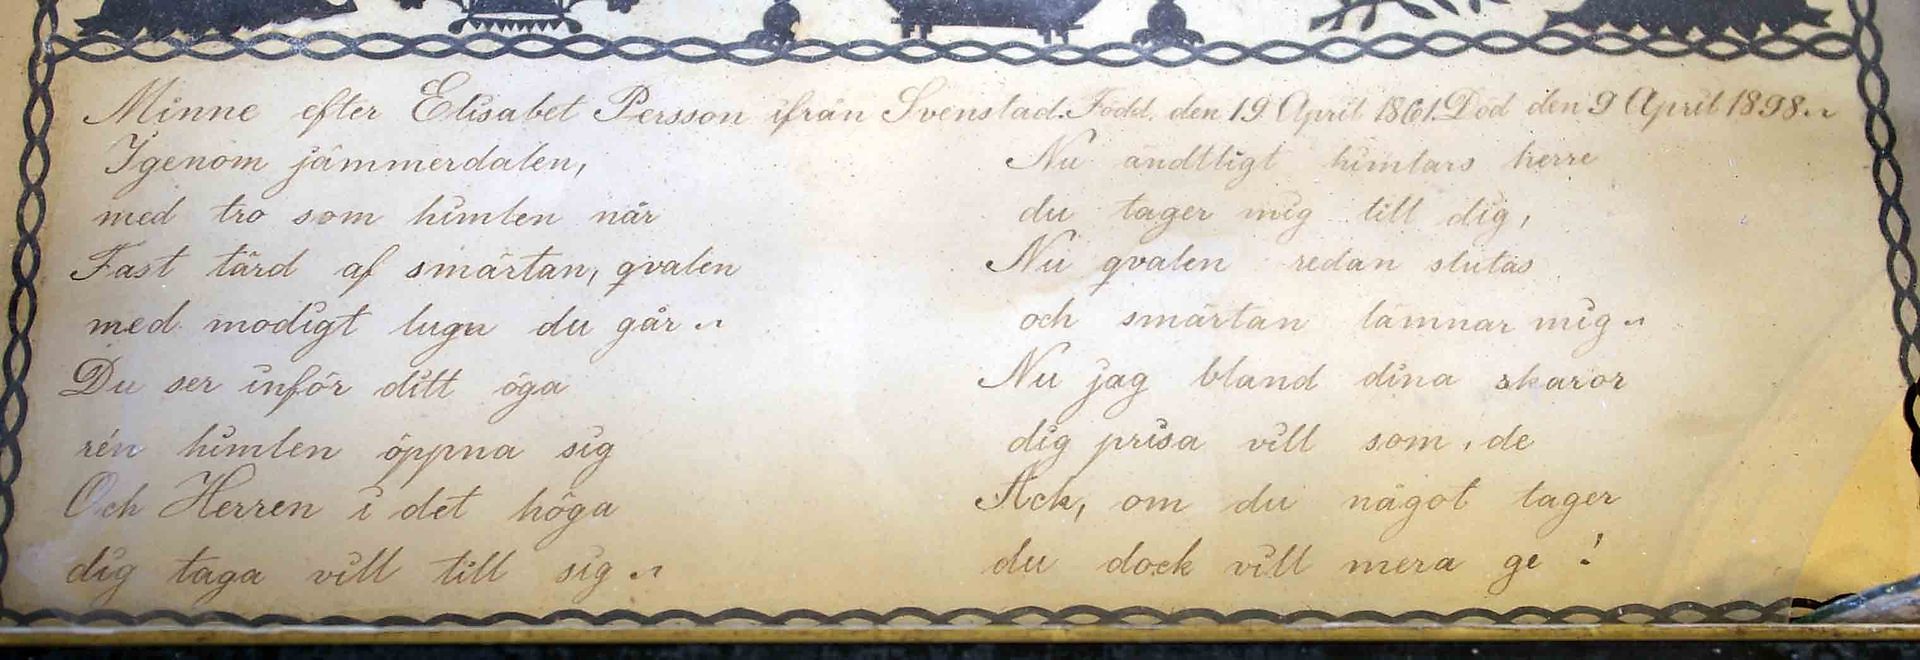 Minne efter Elisabet Persson ifrån Svenstad. Född. den 19 April 1861. Död den 9 April 1898.
Igenom jämmerdalen,
med tro som himlen når
Fast tärd af smärtan, qvalen
med modigt lugn du går.
Du ser inför ditt öga
rén himlen öppna sig
Och Herren i det höga
dig taga vill till sig.
Nu ändtligt himlars herre
du tager mig till dig,
Nu qvalen redan slutas
och smärtan lämnar mig.
Nu jag bland dina skaror
dig prisa vill som de
Ack, om du något tager
du dock vill mera ge!